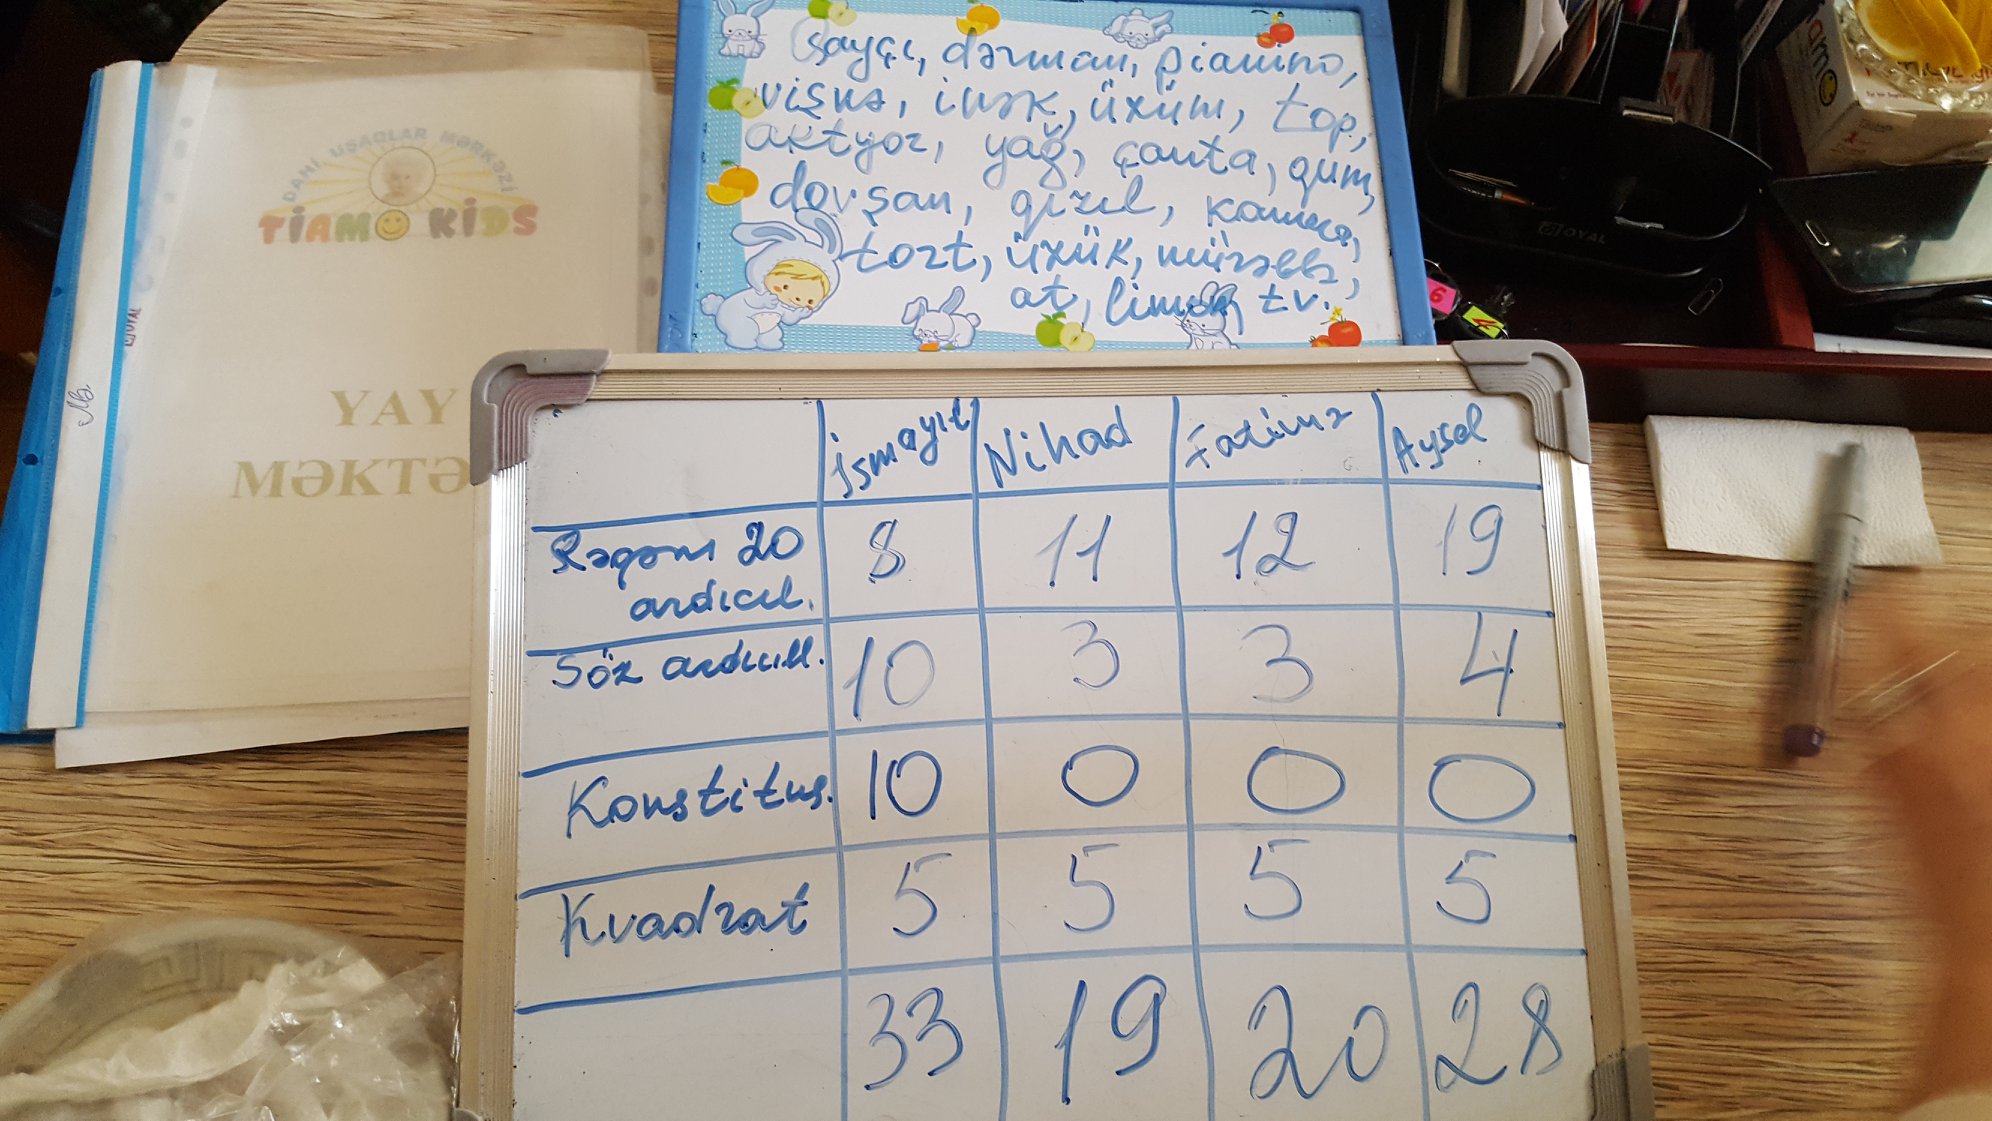 Çayçı, dərman, pianino,
vişnə, inək, üzüm, top,
aktyor, yağ, çanta, qum,
dovşan, qızıl, kanica,
tort, üzük, mürəbbə,
at, limon, tv.
DAHİ UŞAQLAR MƏRKƏZİ
TİAMO KİDS
YAY
MƏKTƏ
İsmayıl Nihad Fatimə Aysel
Rəqəm 20 ardıcıl. 8 11 12 19
Söz ardıcıll. 10 3 3 4
Konstitus. 10 0 0 0
Kvadrat 5 5 5 5
33 19 20 28
ROYAL
6
4